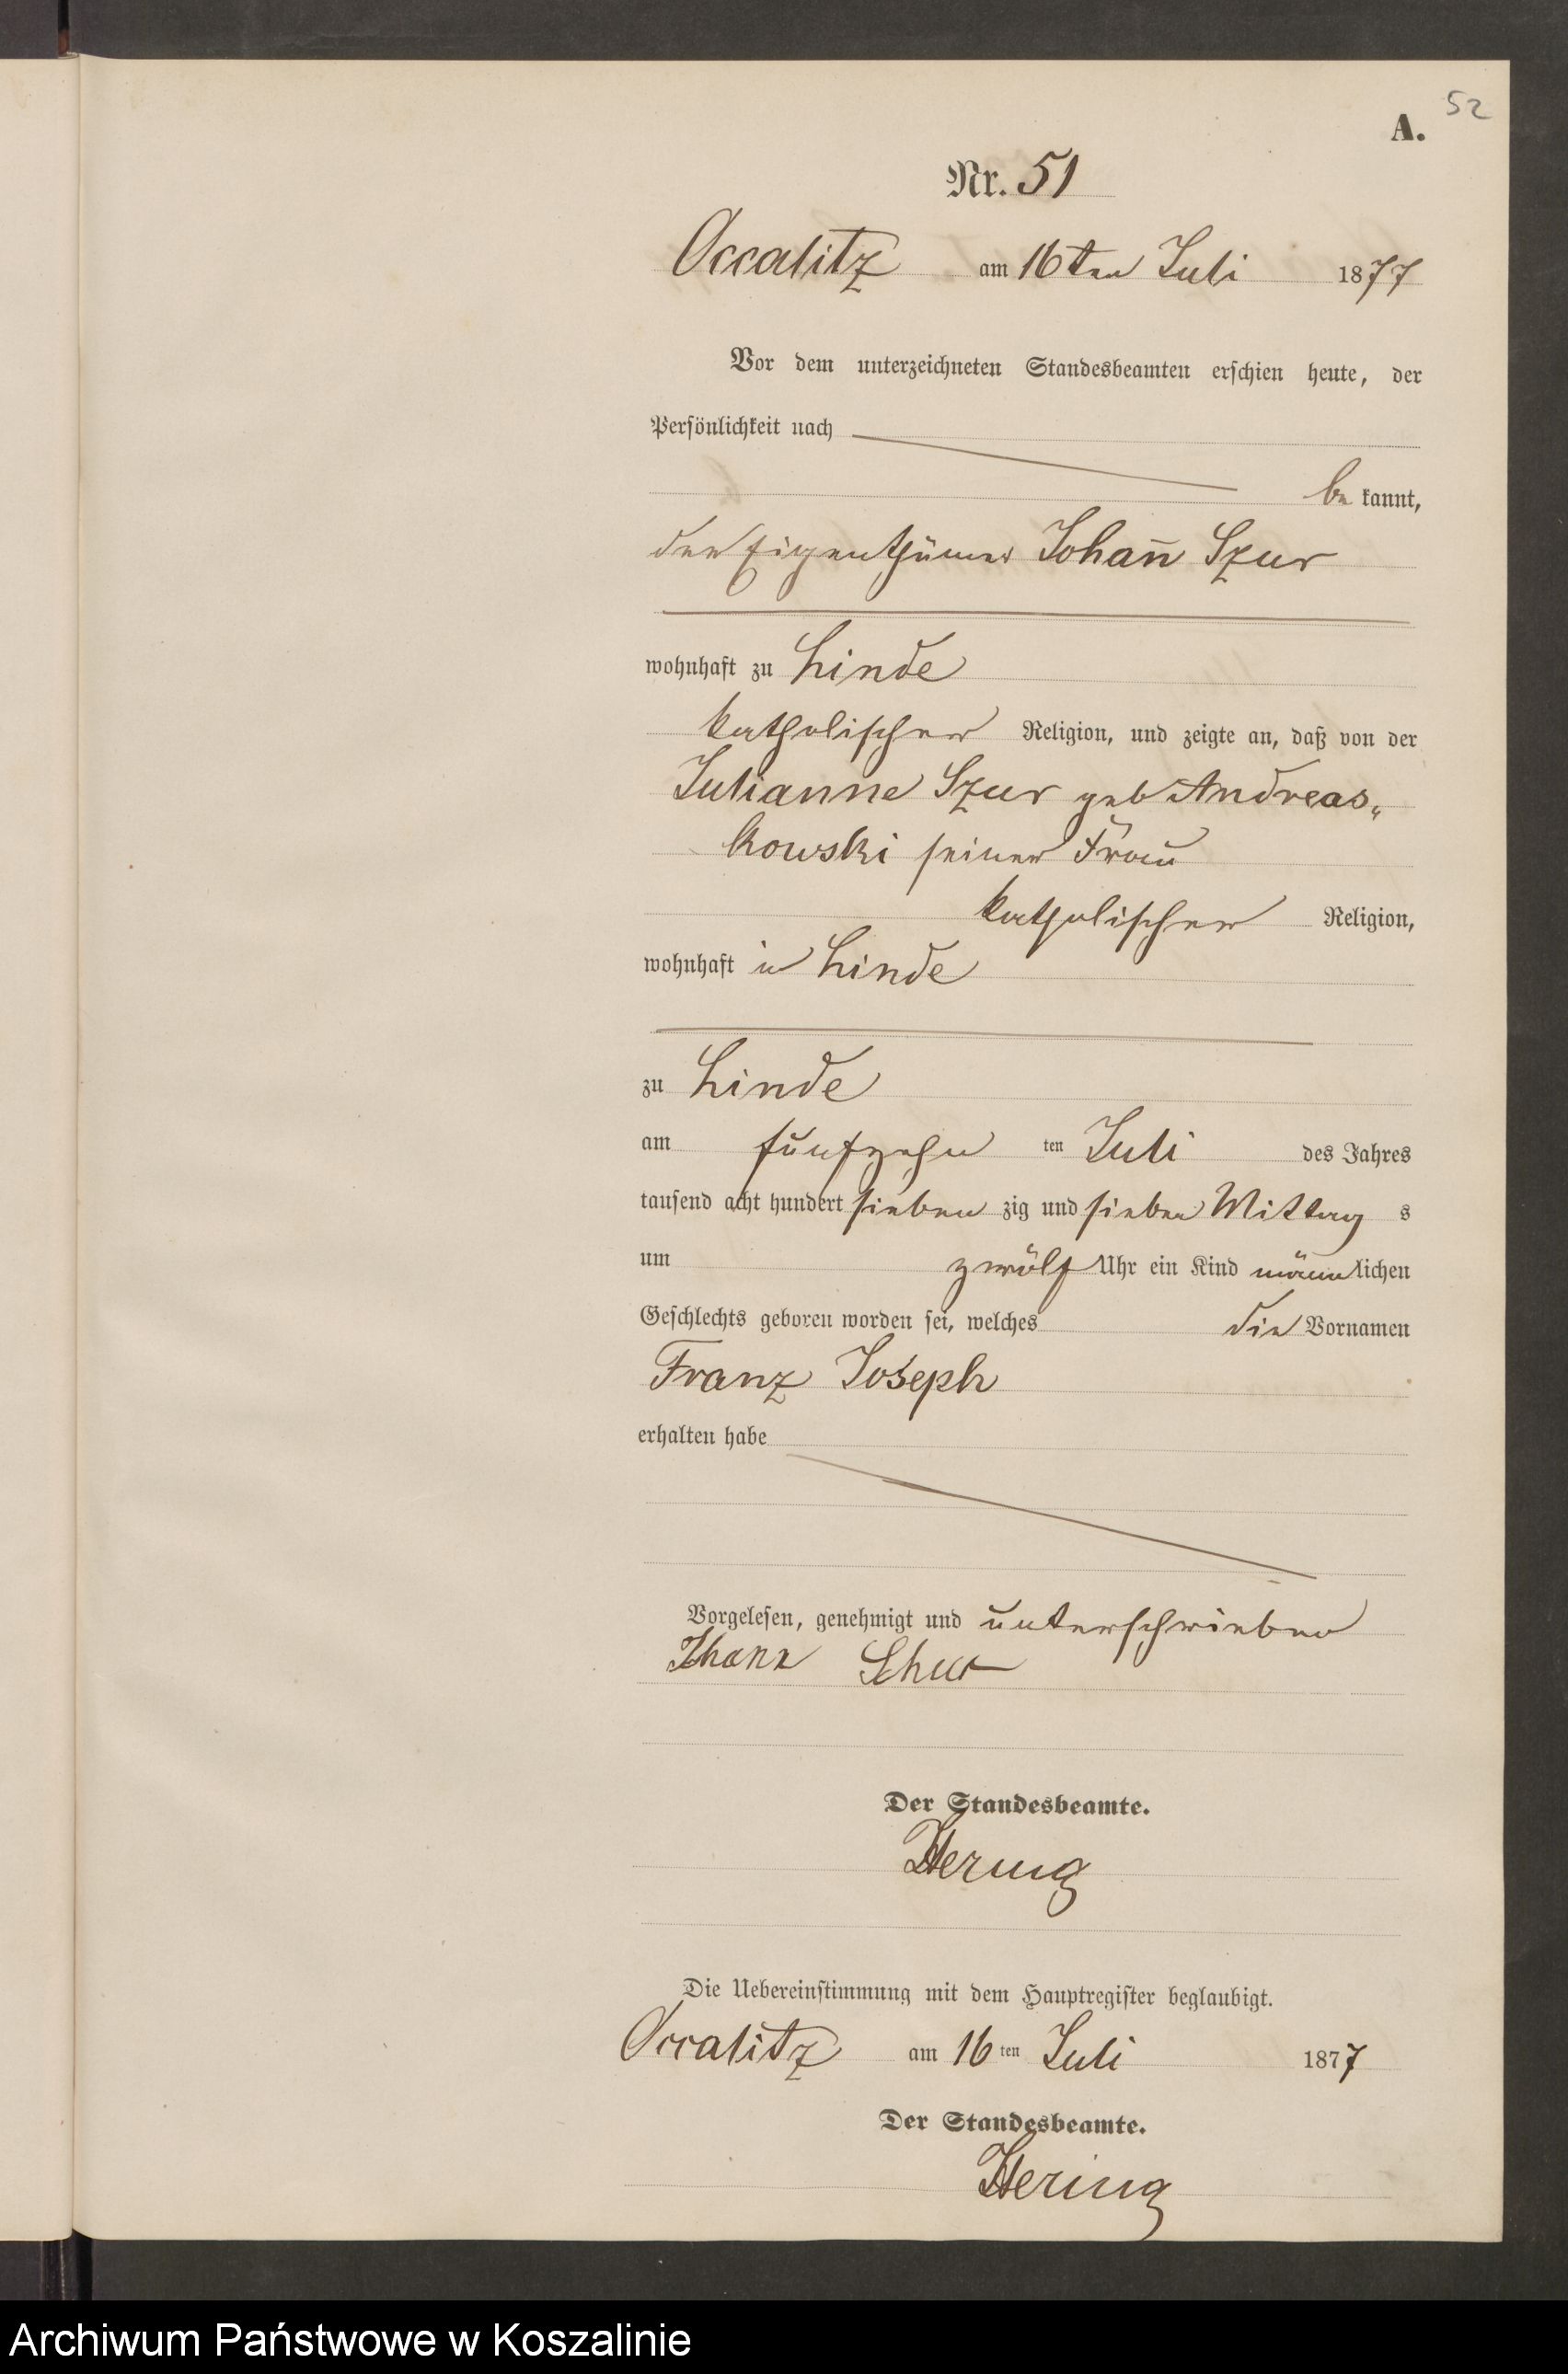 52
A.
Nr. 51
Occalitz am 16ten Juli 1877
Vor dem unterzeichneten Standesbeamten erschien heute, der
Persönlichkeit nach
be kannt,
der Eigenthümer Johan̄ Szur
wohnhaft zu Linde
katholischer Religion, und zeigte an, daß von der
Julianne Szur geb Andreas„
kowski seiner Frau
katholischer Religion,
wohnhaft in Linde
zu Linde
am fünfzehn ten Juli des Jahres
tausend acht hundert sieben zig und sieben Mittag s
um zwölf Uhr ein Kind männlichen
Geschlechts geboren worden sei, welches die Vornamen
Franz Joseph
erhalten habe
Vorgelesen, genehmigt und unterschrieben
Schur
Der Standesbeamte.
Hering
Die Uebereinstimmung mit dem Hauptregister beglaubigt.
Occalitz am 16 ten Juli 1877
Der Standesbeamte.
Hering
Archiwum Państwowe w Koszalinie